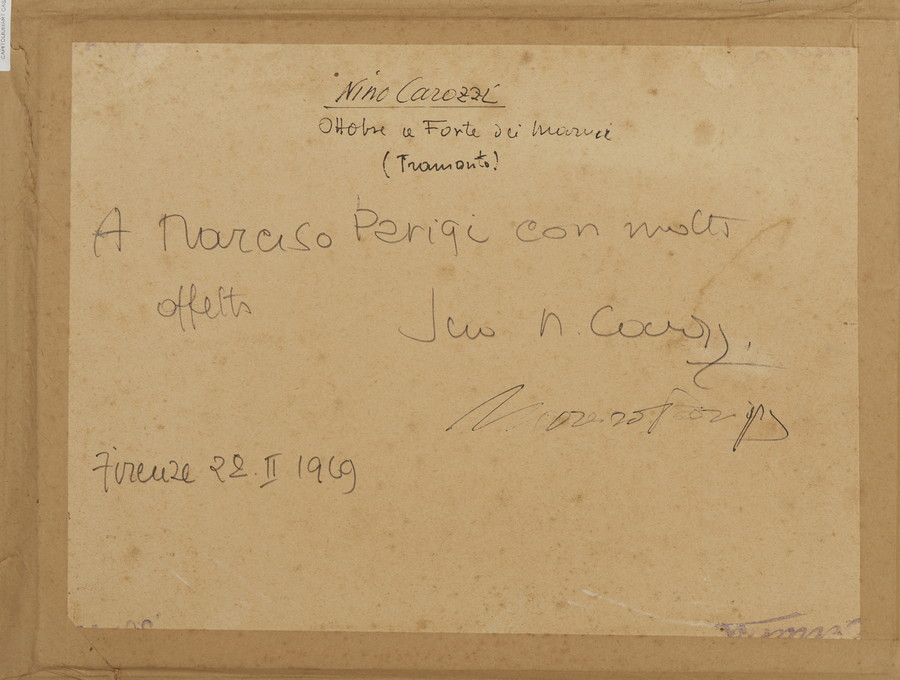 Nino Carozzi
Ottobre a Forte dei Marmi
(Tramonto)
A Narciso Parigi con molto
affetto
Suo N. Carozzi.
Narciso Parigi
Firenze 22. II 1969